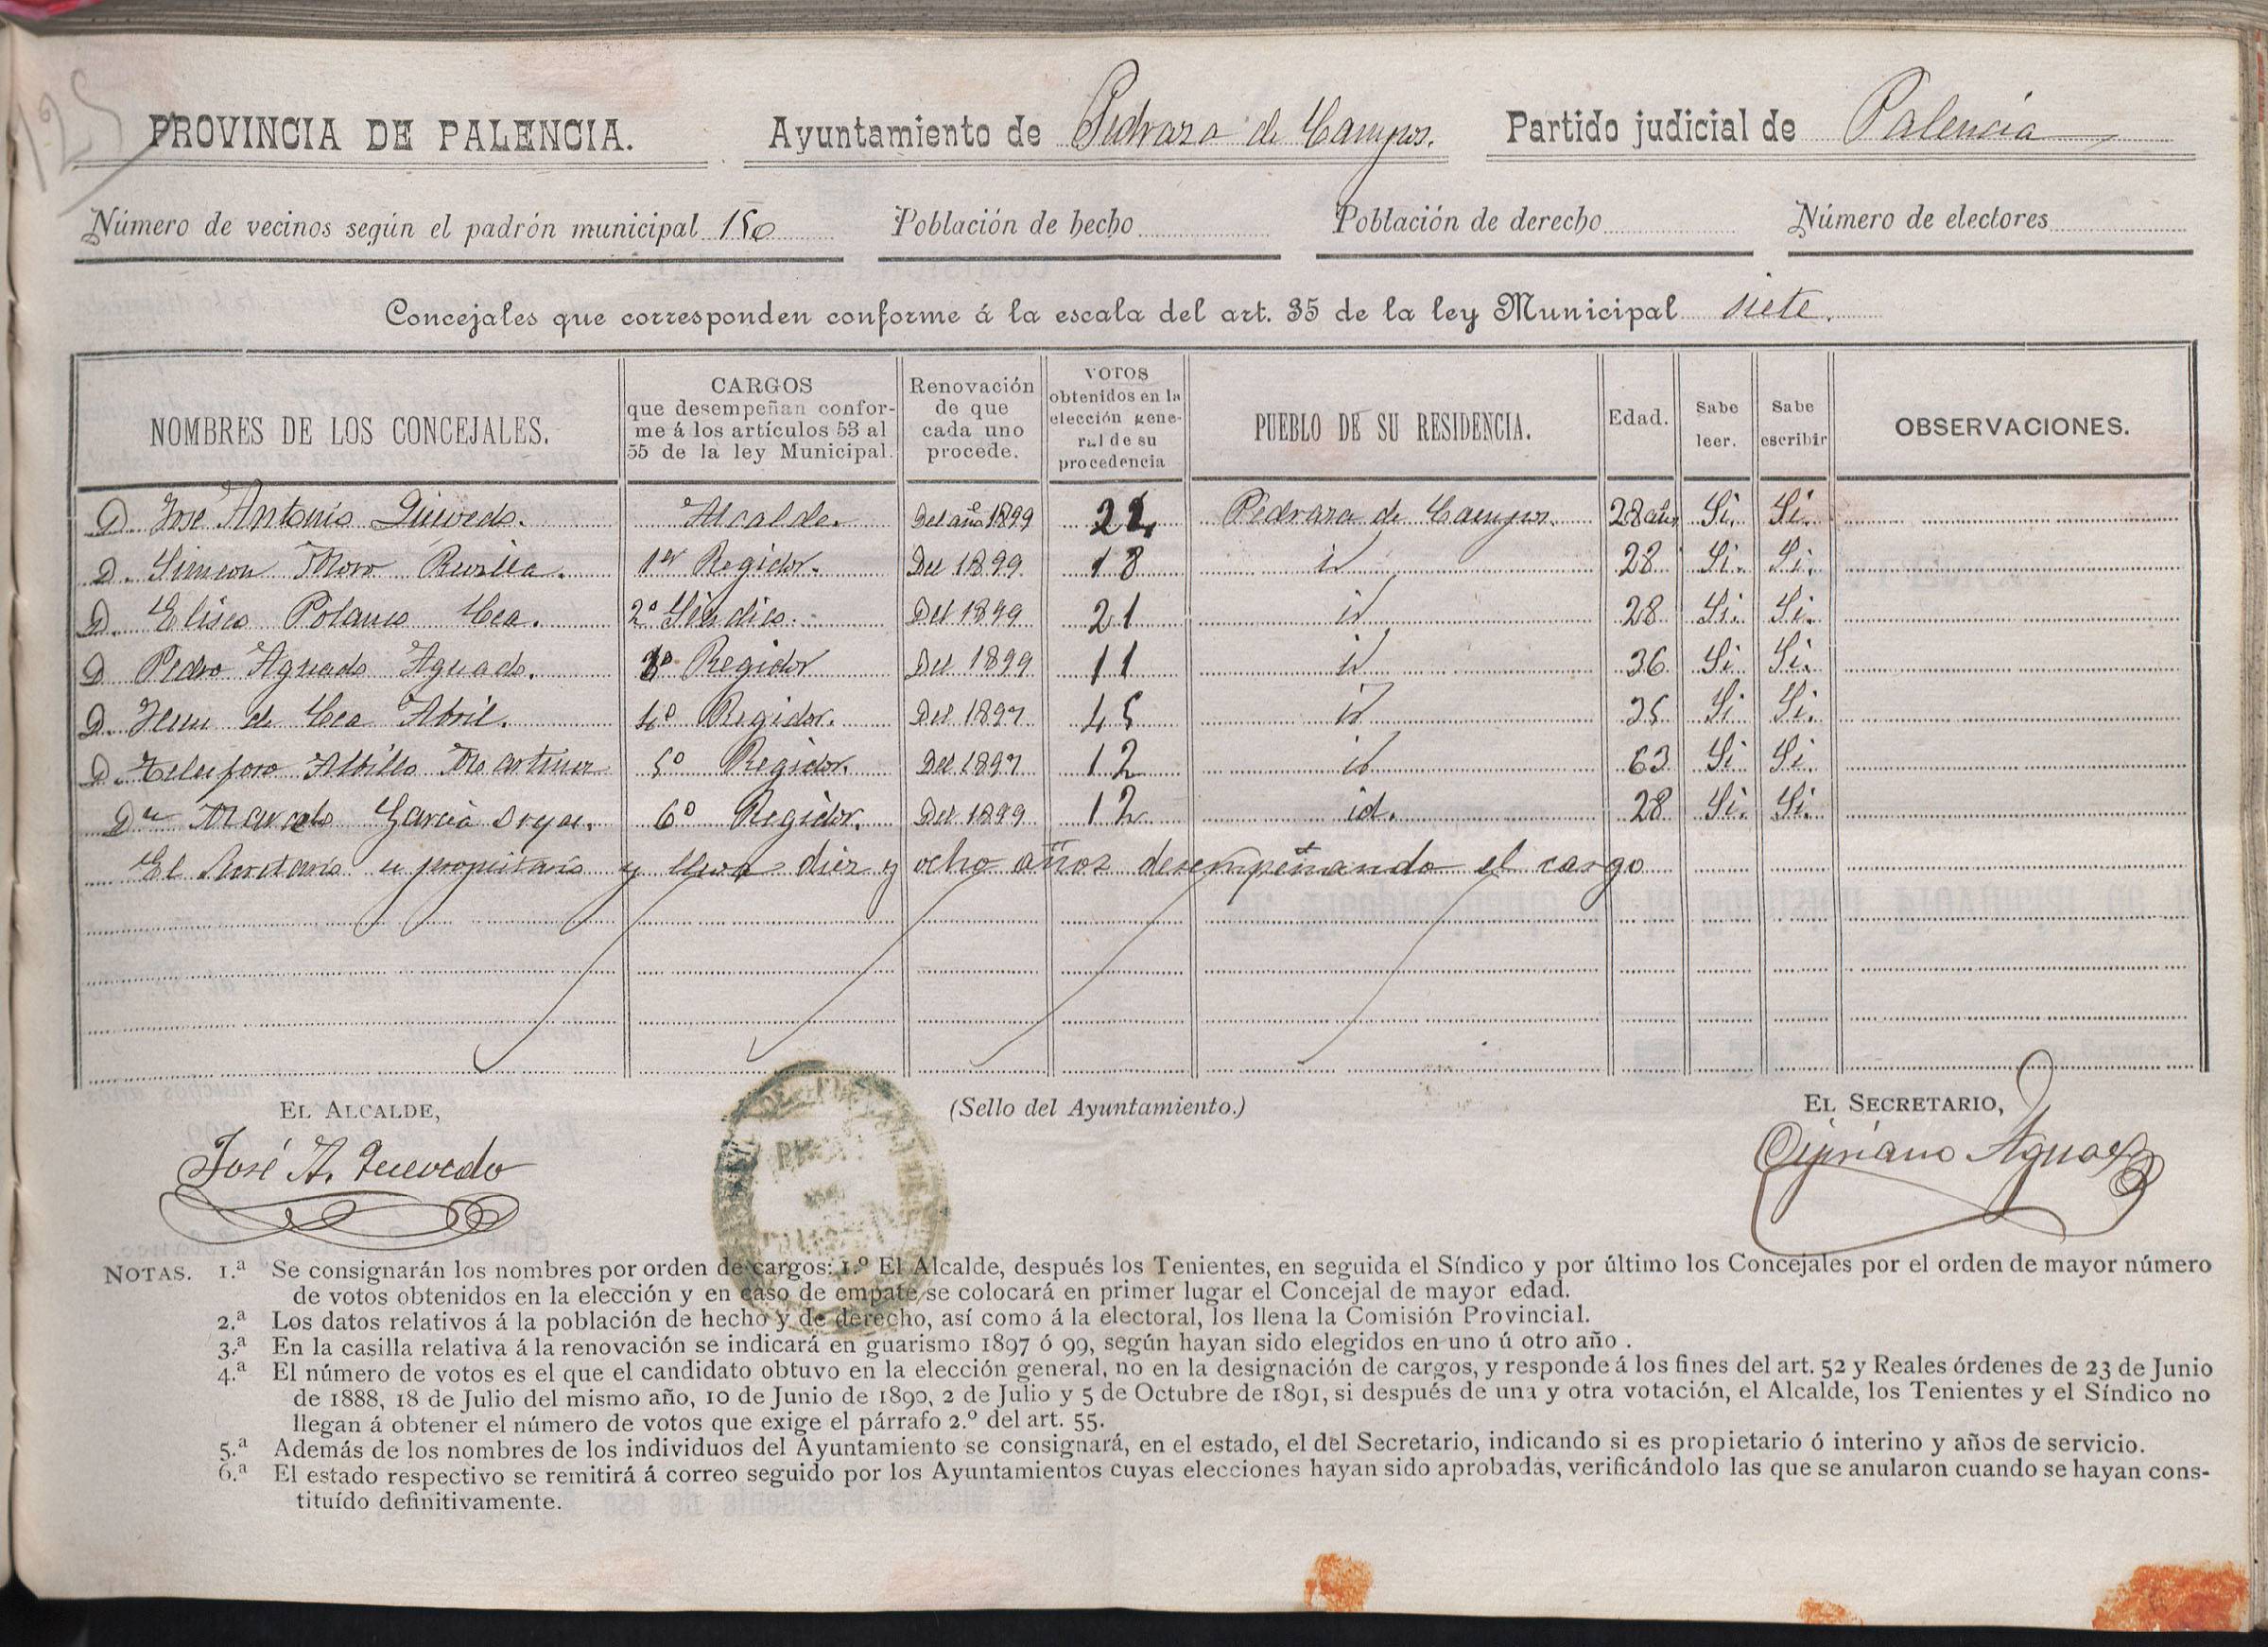 125
PROVINCIA DE PALENCIA. Ayuntamiento de Pedraza de Campos. Partido judicial de Palencia
Número de vecinos según el padrón municipal 150 Población de hecho Población de derecho Número de electores
Concejales que corresponden conforme á la escala del art. 35 de la ley Municipal siete.
NOMBRES DE LOS CONCEJALES. CARGOS que desempeñan conforme á los artículos 53 al 55 de la ley Municipal. Renovación de que cada uno procede. VOTOS obtenidos en la elección general de su procedencia PUEBLO DE SU RESIDENCIA. Edad. Sabe leer. Sabe escribir OBSERVACIONES.
D. José Antonio Quevedo. Alcalde. Del año 1899 Pedraza de Campos. 28 años Si. Si.
D. Simeon Moro Revilla. 1er Regidor. Del 1899 18 id 28 Si. Si.
D. Eliseo Polanco Cea. 2º Síndico. Del 1899 21 id 28 Si. Si.
D Pedro Aguado Aguado. 3º Regidor Del 1899 11 id 36 Si Si.
D. de Cea Abril. 4º Regidor. Del 1897 45 id 35 Si Si.
D. Telesforo Abillo Martinez 5º Regidor. Del 1897 12 id 63 Si Si.
Dn Marcelo García 6º Regidor. Del 1899 12 id. 28 Si. Si.
El Secretario es propietario y lleva diez y ocho años desempeñando el cargo
EL ALCALDE, (Sello del Ayuntamiento.) EL SECRETARIO,
José A. Quevedo Cipriano Aguado
NOTAS. 1.ª Se consignarán los nombres por orden de cargos: 1.º El Alcalde, después los Tenientes, en seguida el Síndico y por último los Concejales por el orden de mayor número
de votos obtenidos en la elección y en caso de empate se colocará en primer lugar el Concejal de mayor edad.
2.ª Los datos relativos á la población de hecho y de derecho, así como á la electoral, los llena la Comisión Provincial.
3.ª En la casilla relativa á la renovación se indicará en guarismo 1897 ó 99, según hayan sido elegidos en uno ú otro año.
4.ª El número de votos es el que el candidato obtuvo en la elección general, no en la designación de cargos, y responde á los fines del art. 52 y Reales órdenes de 23 de Junio
de 1888, 18 de Julio del mismo año, 10 de Junio de 1890, 2 de Julio y 5 de Octubre de 1891, si después de una y otra votación, el Alcalde, los Tenientes y el Síndico no
llegan á obtener el número de votos que exige el párrafo 2.º del art. 55.
5.ª Además de los nombres de los individuos del Ayuntamiento se consignará, en el estado, el del Secretario, indicando si es propietario ó interino y años de servicio.
6.ª El estado respectivo se remitirá á correo seguido por los Ayuntamientos cuyas elecciones hayan sido aprobadas, verificándolo las que se anularon cuando se hayan cons-
tituído definitivamente.